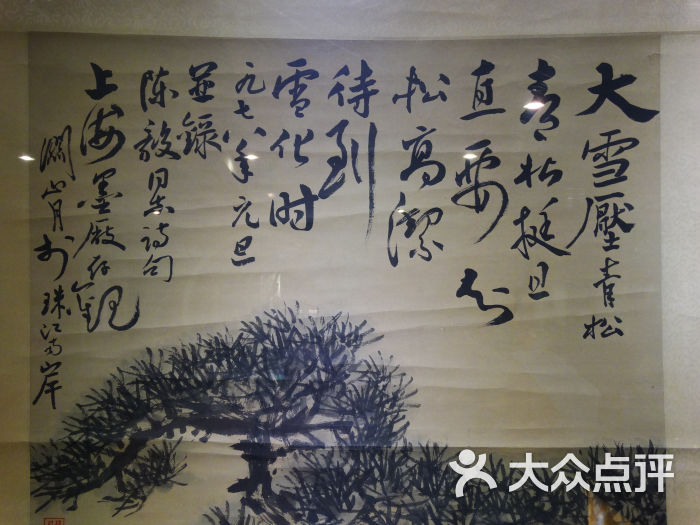 大雪壓青松
青松挺且
直要知
松高潔
待到
雪化时
一九七八年元旦
並錄
陈毅同志詩句
上海墨厰存
關山月於珠江南岸
大众点评